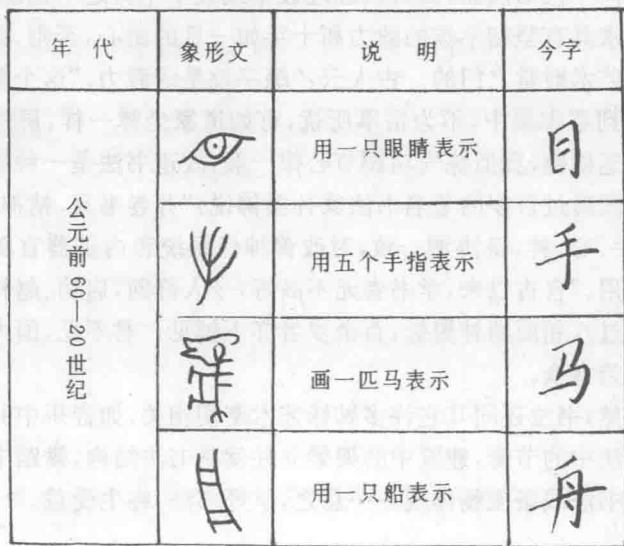 年 代 象形文 说 明 今字
公元前60—20世纪
用一只眼睛表示 目
用五个手指表示 手
画一匹马表示 马
用一只船表示 舟